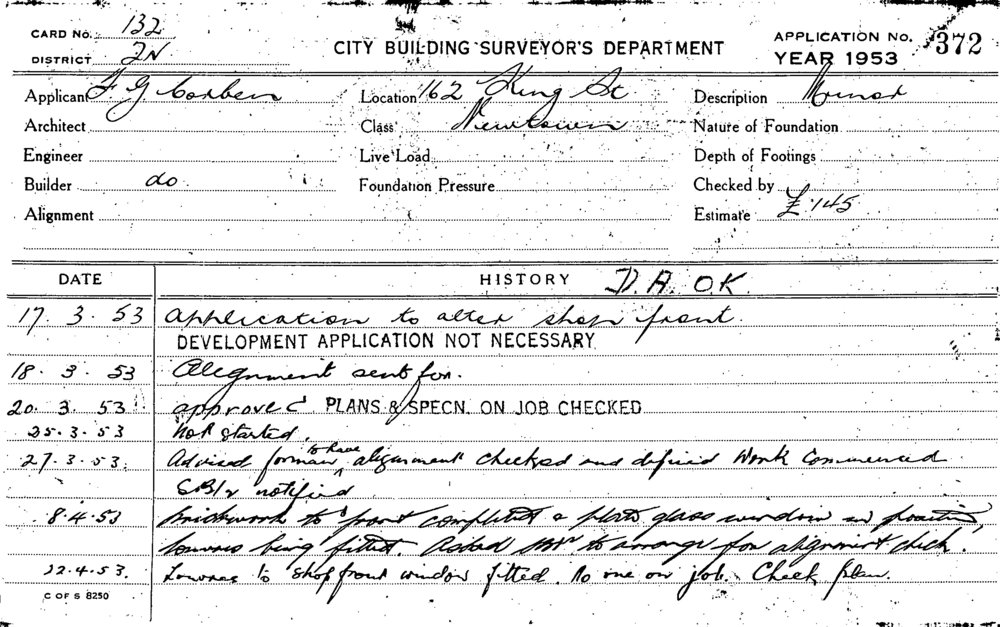 CARD No. 132
DISTRICT 2N
CITY BUILDING SURVEYOR'S DEPARTMENT
APPLICATION No. 372
YEAR 1953
Applicant F G Corben
Location 162 King St
Description Minor
Architect
Class Newtown
Nature of Foundation
Engineer
Live Load
Depth of Footings
Builder do
Foundation Pressure
Checked by
Alignment
Estimate £145
DATE
HISTORY D.A. O.K.
17. 3. 53 Application to alter shop front.
DEVELOPMENT APPLICATION NOT NECESSARY
18. 3. 53 Alignment sent for.
20. 3. 53 approved PLANS & SPECN. ON JOB CHECKED
25. 3. 53 Not started.
27. 3. 53. Advised forman to have alignment checked and defined Work Commenced
notified
8. 4. 53 Brickwork to front completed & plate glass window in position,
louvres being fitted. Asked to arrange for alignment check.
22. 4. 53. Louvres to shop front window fitted. No one on job. Check plan.
C OF S 8250